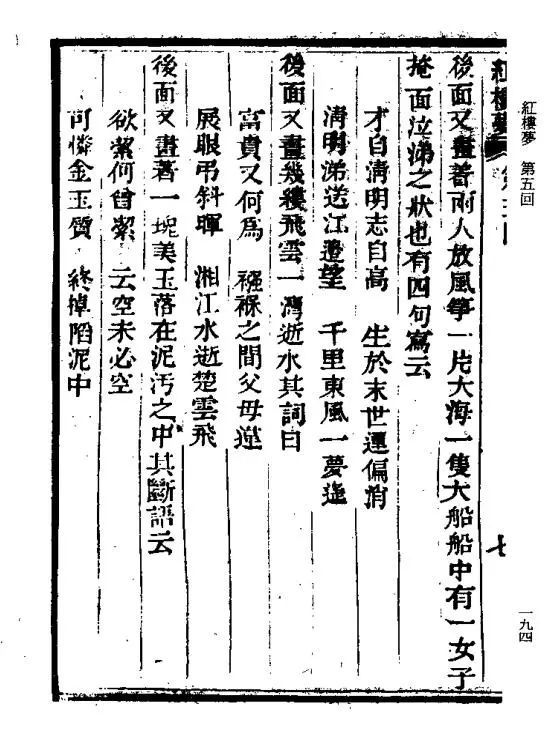 紅樓夢　第五回
一九四
紅樓夢
七
後面又畫着兩人放風箏一片大海一隻大船船中有一女子
掩面泣涕之狀也有四句寫云
才自清明志自高　生於末世運偏消
清明涕送江邊望　千里東風一夢遙
後面又畫幾縷飛雲一灣逝水其詞曰
富貴又何爲　襁褓之間父母違
展眼弔斜暉　湘江水逝楚雲飛
後面又畫著一塊美玉落在泥污之中其斷語云
欲潔何曾潔　云空未必空
可憐金玉質　終掉陷泥中